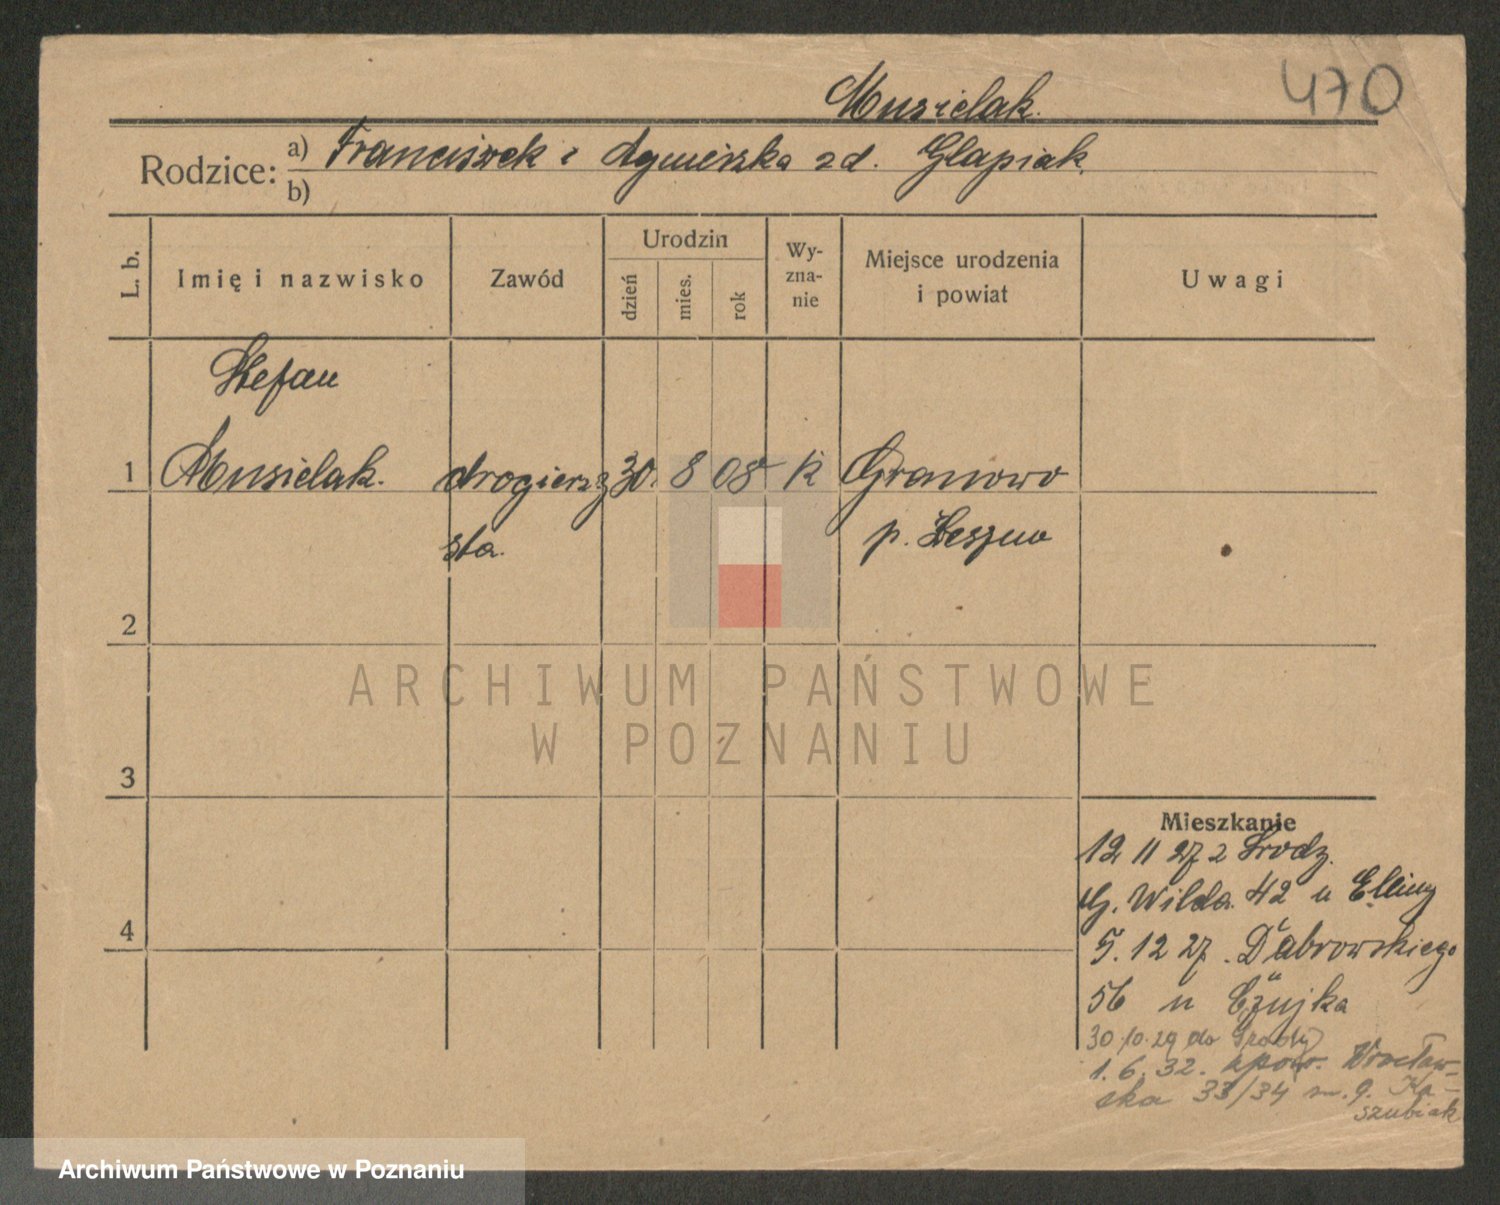 470
Musielak.
Rodzice: a) Franciszek i Agnieszka zd. Glapiak.
b)
L. b.
Imię i nazwisko
Zawód
Urodzin
dzień
mies.
rok
Wy-
zna-
nie
Miejsce urodzenia
i powiat
Uwagi
Stefan
1 Musielak. drogierzy 30. 8 08 k Granowo
sta. p. Leszno
2
ARCHIWUM PAŃSTWOWE
W POZNANIU
3
Mieszkanie
12 11 27 z
G. Wilda 42 u
4
5. 12 27. Dąbrowskiego
56 u Czujka
30.10.29 do Środy
1. 6. 32. spow. Wrocław-
ska 33/34 m. 9. Ka-
szubiak
Archiwum Państwowe w Poznaniu